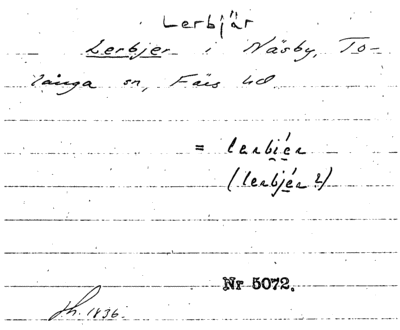 Lerbjär
Lerbjer i Näsby, To-
långa sn, Färs hd
= lerbiér
(lerbjér ?)
Nr 5072.
1836.